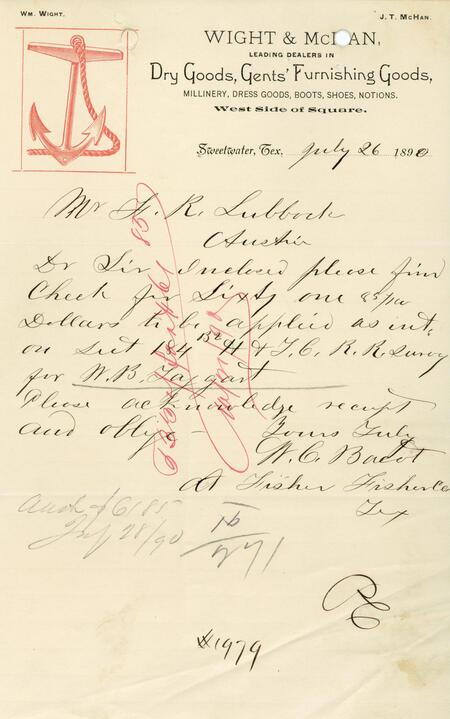 WM. WIGHT.
J. T. McHAN.
WIGHT & McHAN,
LEADING DEALERS IN
Dry Goods, Gents' Furnishing Goods,
MILLINERY, DRESS GOODS, BOOTS, SHOES, NOTIONS.
West Side of Square.
Sweetwater, Tex. July 26 1890
Mr F. R. Lubbock
Austin
Dr Sir Inclosed please find
Check for Sixty one 85/100
Dollars to be applied as int.
on Sect 134 H & T. C. R. R. Survy
for W. B. Taggart
Please acknowledge receipt
and oblige Yours Truly
W. C. Bacot
At Fisher Fisher Co
Tex
6185
28/90
1979